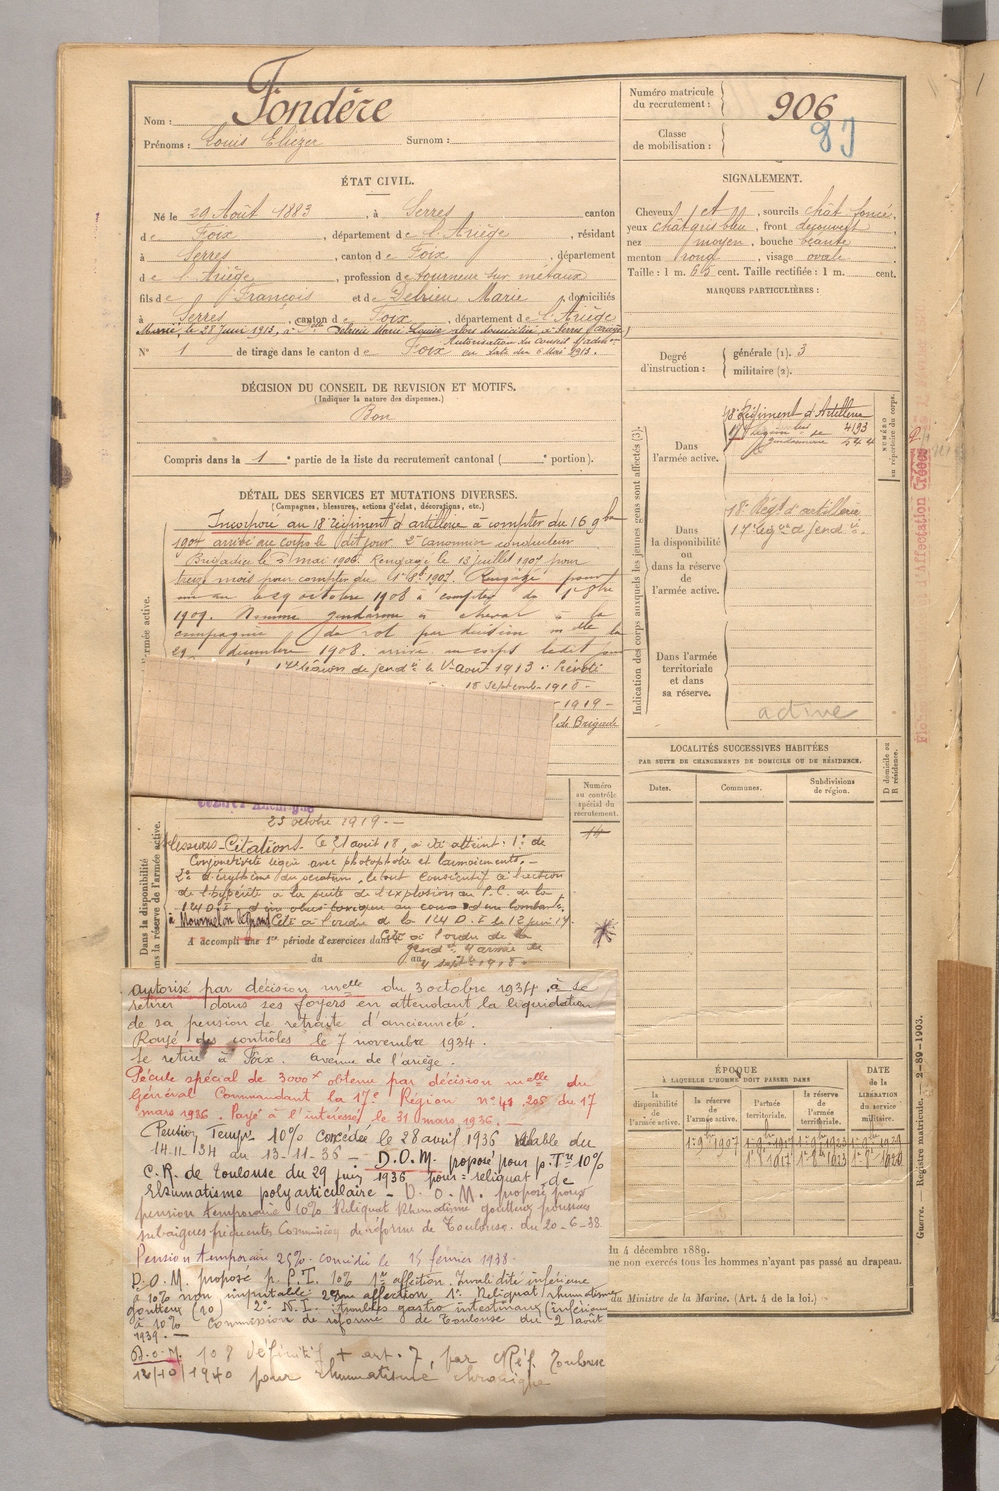 Nom : Fondère
Prénoms : Louis Eliézer Surnom :
Numéro matricule du recrutement : 906
Classe de mobilisation :
ÉTAT CIVIL.
Né le 29 Août 1883, à Serres canton
de Foix, département de l'Ariège, résidant
à Serres, canton de Foix, département
de l'Ariège, profession de tourneur sur métaux
fils de François et de Delrieu Marie, domiciliés
à Serres, canton de Foix, département de l'Ariège
Marié le 28 Juin 1913, à Delrieu Marie Louise domiciliée à Serres (Ariège)
Autorisation du Conseil d'adon
en date du 6 Mai 1913.
N° 1 de tirage dans le canton de Foix
SIGNALEMENT.
Cheveux, sourcils chât foncé,
yeux chât gris bleu, front découvert,
nez moyen, bouche béante,
menton rond, visage ovale.
Taille : 1 m. 65 cent. Taille rectifiée : 1 m. cent.
MARQUES PARTICULIÈRES :
Degré d'instruction : générale (1). 3
militaire (2).
DÉCISION DU CONSEIL DE REVISION ET MOTIFS.
(Indiquer la nature des dispenses.)
Bon
Compris dans la 1e partie de la liste du recrutement cantonal ( e portion).
DÉTAIL DES SERVICES ET MUTATIONS DIVERSES.
(Campagnes, blessures, actions d'éclat, décorations, etc.)
Incorporé au 18e régiment d'artillerie à compter du 16 9bre
1904 arrivé au corps le dit jour 2e canonnier conducteur
Brigadier le mai 1906. Rengagé le 13 juillet 1907 pour
treize mois pour compter du 1907. Rengagé pour
un an le 29 octobre 1908 à compter du 1er
1909. Nommé gendarme à cheval à la
compagnie du Lot par décision mlle du
29 décembre 1908. arrivé au corps ledit jour
17e Légion de gendie le 1er août 1913. Prévôté
18 Septembre 1918 -
1919 -
de Brigade
25 octobre 1919 -
Blessures - Citations. Le 21 août 18, a été atteint : 1° de
Conjonctivite légère avec photophobie et larmoiements. -
2° d'érythème du scrotum, le tout consécutif à l'action
de l'hypérite à la suite de l'explosion au P.C. de la
124 D.I. d'un obus toxique au cours d'une bombardt.
à Mourmelon le Grand Cité à l'ordre de la 124 D.I. le 12 juin 17
A accompli une 1re période d'exercices dans Cité à l'ordre de la
gendie 4 armée du
du au 4 septbre 1918.
Indication des corps auxquels les jeunes gens sont affectés (3).
Dans l'armée active.
18e Régiment d'Artillerie 4193
17e Légion bis de gendarmerie 544
NUMÉRO au répertoire du corps.
Dans la disponibilité ou dans la réserve de l'armée active.
18e Régt d'artillerie
17e Légion de gendie.
Dans l'armée territoriale et dans sa réserve.
active
LOCALITÉS SUCCESSIVES HABITÉES
PAR SUITE DE CHANGEMENTS DE DOMICILE OU DE RÉSIDENCE.
Dates. Communes. Subdivisions de région. D domicile ou R résidence.
Numéro au contrôle spécial du recrutement.
Dans la disponibilité
ÉPOQUE
À LAQUELLE L'HOMME DOIT PASSER DANS
la disponibilité de l'armée active. la réserve de l'armée active. l'armée territoriale. la réserve de l'armée territoriale. DATE de la LIBÉRATION du service militaire.
Autorisé par décision mlle du 3 octobre 1934 à se
retirer dans ses foyers en attendant la liquidation
de sa pension de retraite d'ancienneté.
Rayé des contrôles le 7 novembre 1934.
Se retire à Foix. avenue de l'ariège.
Pécule spécial de 3000f obtenu par décision mlle du
Général Commandant la 17e Région n° 41.205 du 17
mars 1936. Payé à l'intéressé le 31 mars 1936. -
Pension Temp. 10% concédée le 28 avril 1936 valable du
14-11-34 au 13-11-36 - D.O.M. proposé pour p. Tre 10%
C.R. de Toulouse du 29 juin 1936 pour : reliquat de
rhumatisme polyarticulaire - D.O.M. proposé pour
pension temporaire 10% Reliquat Rhumatisme goutteux poussées
subaiguës fréquentes Commission de réforme de Toulouse. du 20-6-38
Pension temporaire 25% concédée le 15 février 1938.
D.O.M. proposé p. P.T. 10% 1re affection. Invalidité inférieure
à 10% non imputable 2ème affection. 1° Reliquat rhumatisme
goutteux (10) 2° N.I. troubles gastro intestinaux (inférieure
à 10% Commission de réforme de Toulouse du 2 août
1939. -
D.O.M. 10% définitif + art. 7, par C Réf. Toulouse
12/10/1940 pour rhumatisme chronique
du 4 décembre 1889.
ne non exercés tous les hommes n'ayant pas passé au drapeau.
du Ministre de la Marine. (Art. 4 de la loi.)
Guerre. — Registre matricule. — 2-89-1903.